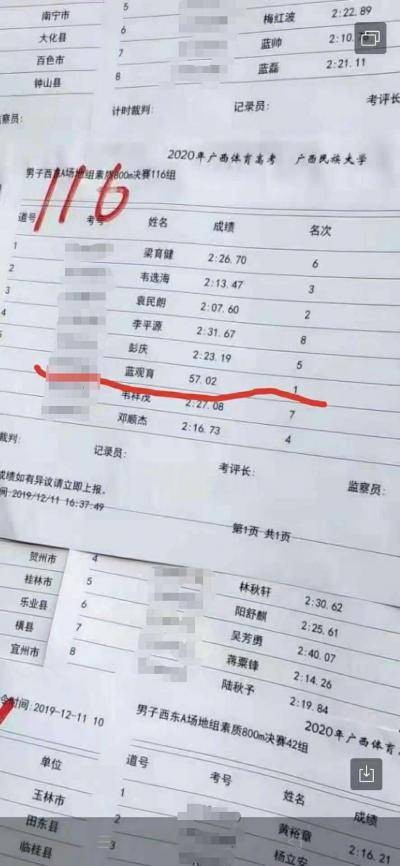 南宁市 5 梅红波 2:22.89
大化县 6 蓝帅 2:10.
百色市 7 蓝磊 2:21.11
钟山县 8
监察员: 计时裁判: 记录员: 考评长
2020年广西体育高考 广西民族大学
男子西东A场地组素质800m决赛116组
116
道号 考号 姓名 成绩 名次
1 梁育健 2:26.70 6
2 韦选海 2:13.47 3
3 袁民朗 2:07.60 2
4 李平源 2:31.67 8
5 彭庆 2:23.19 5
蓝观育 57.02 1
韦祥茂 2:27.08 7
邓顺杰 2:16.73 4
裁判: 记录员: 考评长: 监察员:
成绩如有异议请立即上报。
间:2019/12/11 16:37:49
第1页 共1页
贺州市 4 林秋轩 2:30.62
桂林市 5 阳舒麒 2:25.61
乐业县 6 吴芳勇 2:40.07
横县 7 蒋粟锋 2:14.26
宜州市 8 陆秋予 2:19.84
时间:2019-12-11 10
男子西东A场地组素质800m决赛42组
2020年广西体育
单位 道号 考号 姓名 成绩
玉林市 1 黄裕章 2:16.21
田东县 2 杨立安
临桂县 3